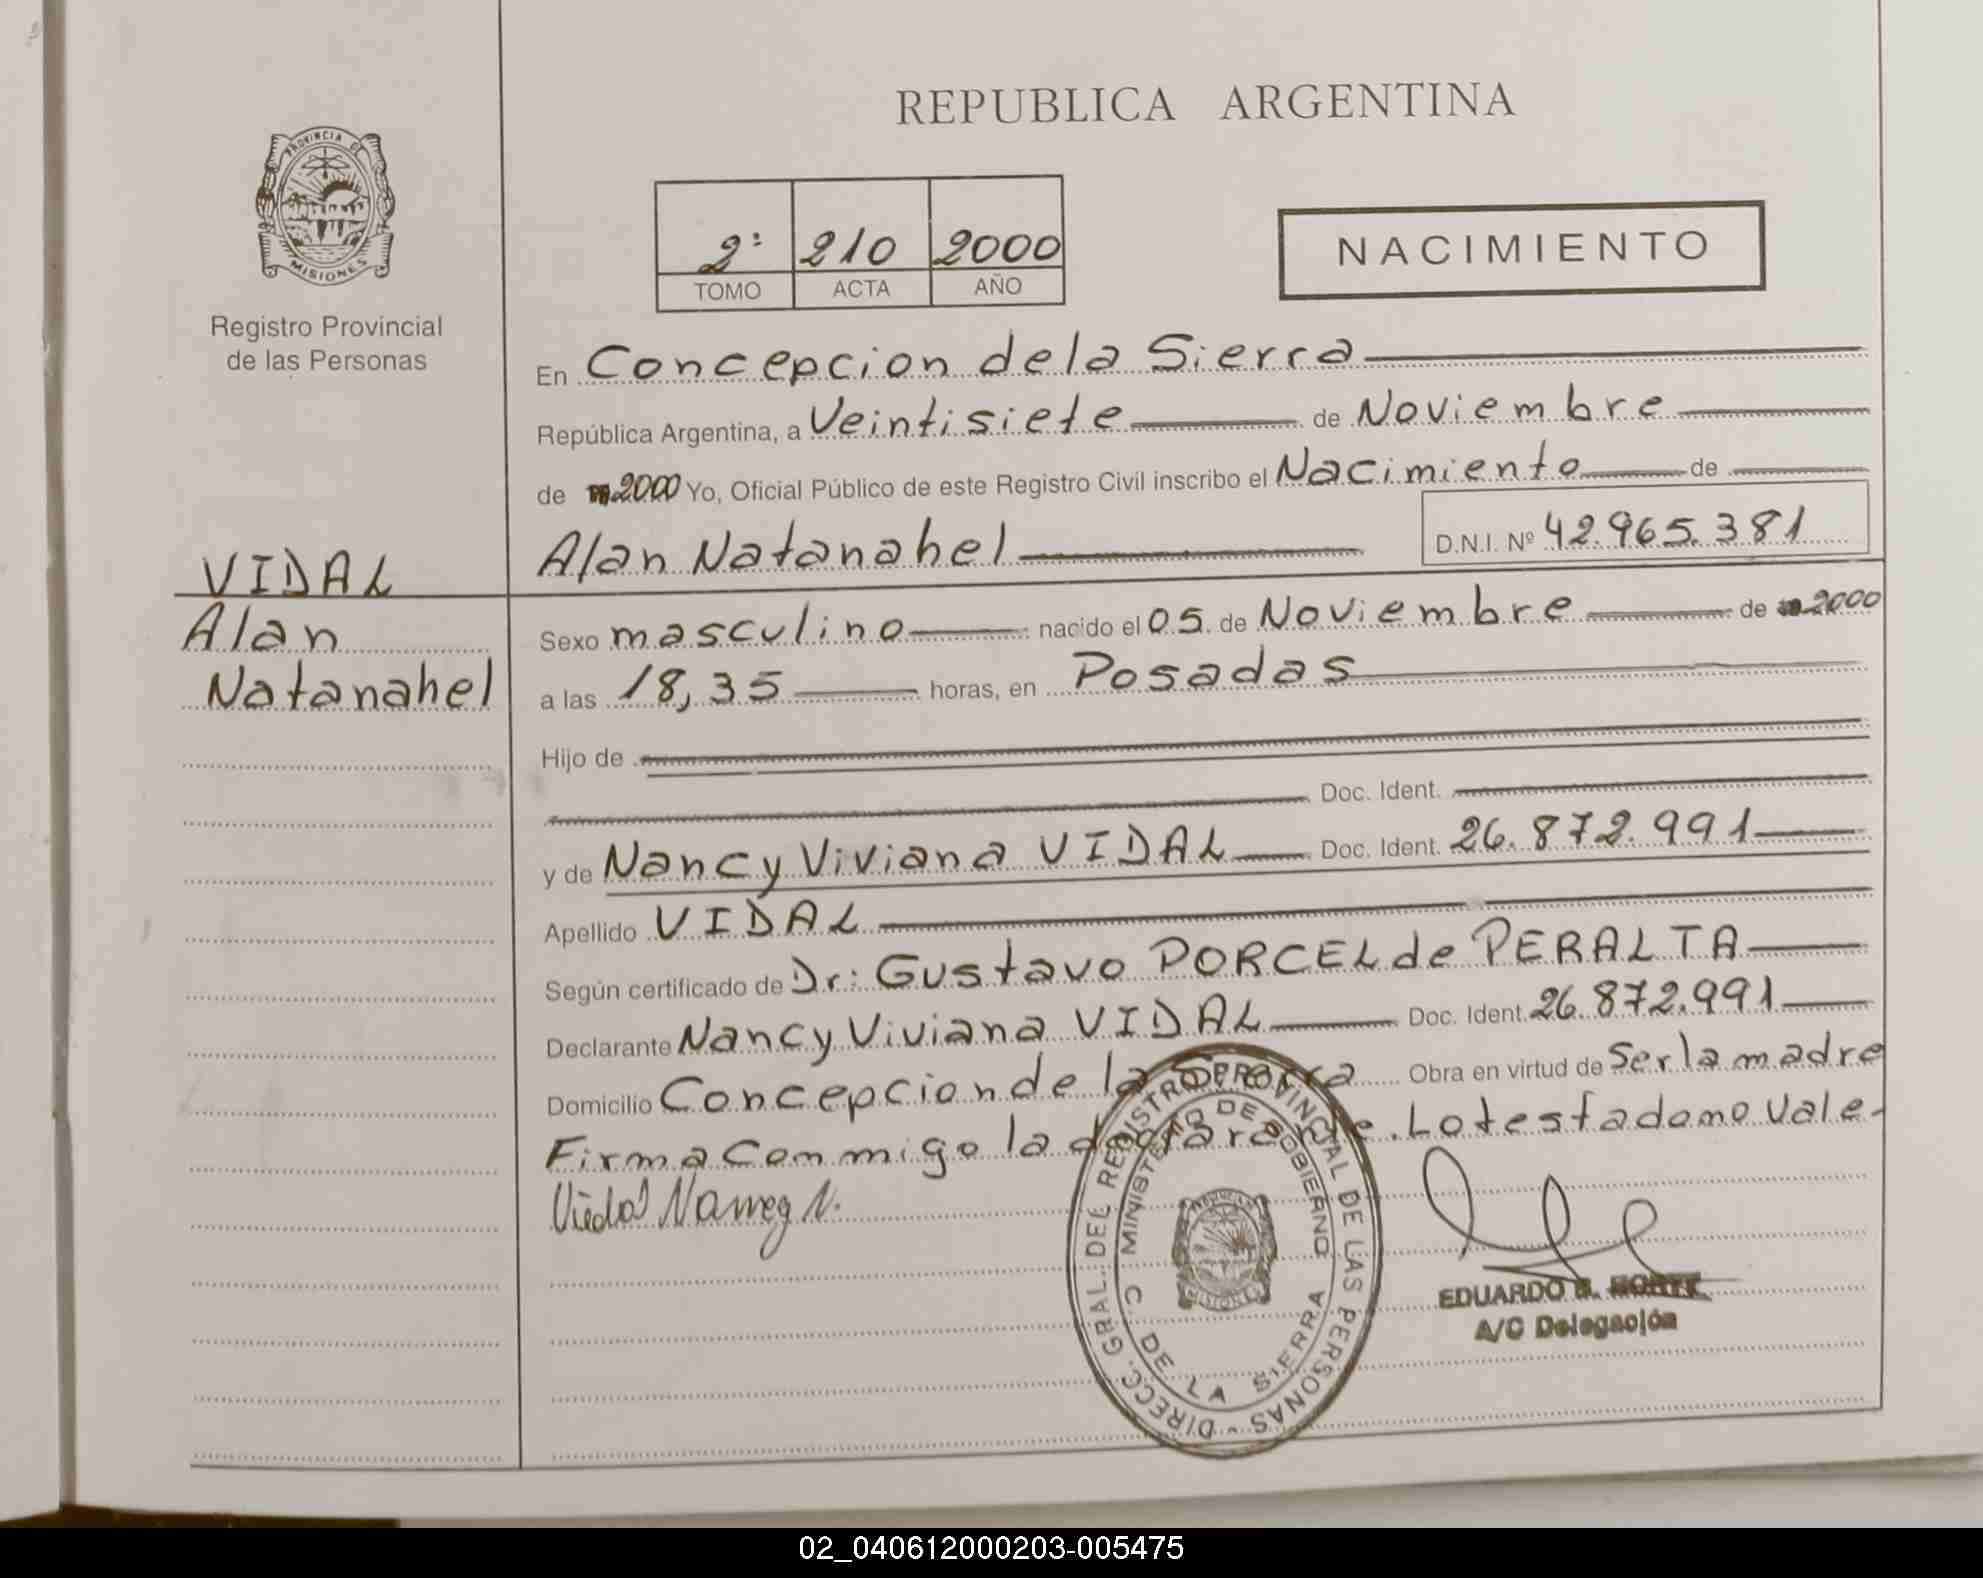 REPUBLICA ARGENTINA
PROVINCIA DE
MISIONES
Registro Provincial
de las Personas
2º 210 2000
TOMO ACTA AÑO
NACIMIENTO
En Concepcion de la Sierra
República Argentina, a Veintisiete de Noviembre
de 2000 Yo, Oficial Público de este Registro Civil inscribo el Nacimiento de
Alan Natanahel D.N.I. Nº 42.965.381
VIDAL
Alan
Natanahel
Sexo masculino nacido el 05 de Noviembre de 2000
a las 18,35 horas, en Posadas
Hijo de
Doc. Ident.
y de Nancy Viviana VIDAL Doc. Ident. 26.872.991
Apellido VIDAL
Según certificado de Dr: Gustavo PORCEL de PERALTA
Declarante Nancy Viviana VIDAL Doc. Ident. 26.872.991
Domicilio Concepcion de la Sierra Obra en virtud de Ser la madre
Firma Conmigo la declarante. Lo testado no vale-
Vidal Nancy V.
DIRECC. GRAL. DEL REGISTRO PROVINCIAL DE LAS PERSONAS -
MINISTERIO DE GOBIERNO
C DE LA SIERRA
MISIONES
EDUARDO B.
A/C Delegación
02_040612000203-005475